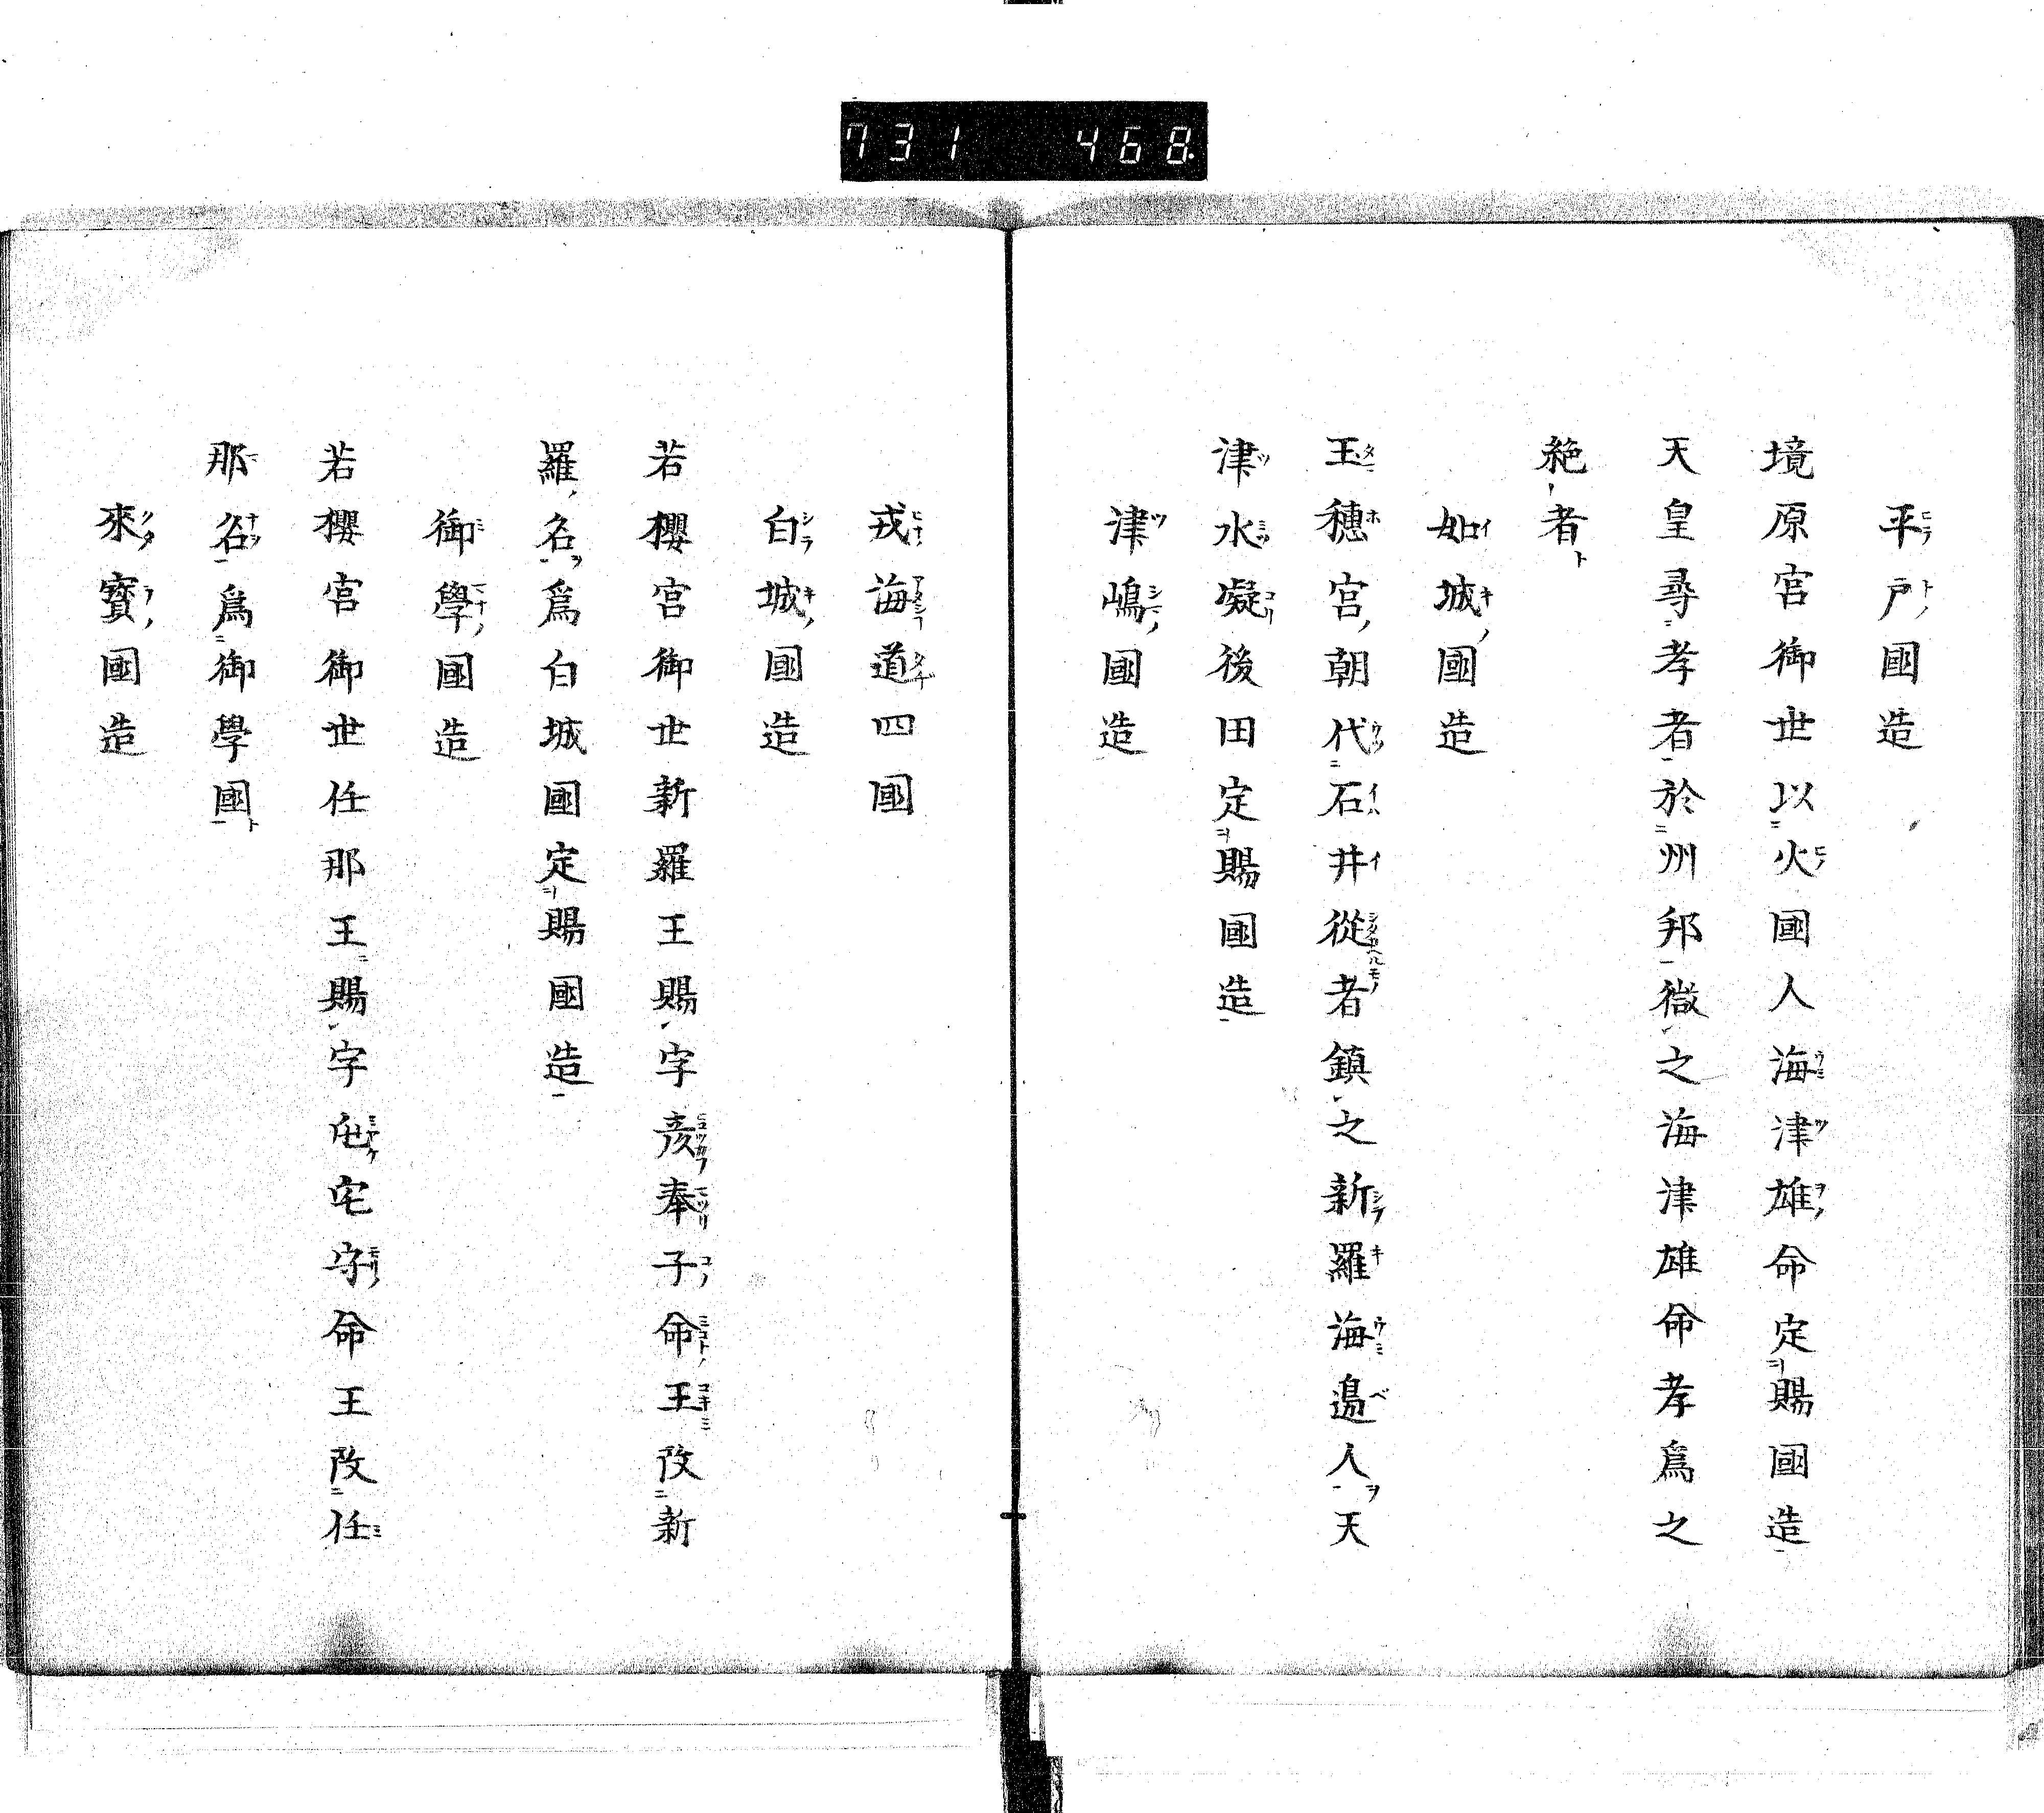 731 468.
平戸國造
境原宮御世以火國人海津雄命定賜國造
天皇尋孝者於州邦徴之海津雄命孝爲之
絶者
如城國造
玉穗宮朝代石井從者鎮之新羅海邊人天
津水凝後田定賜國造
津嶋國造
戎海道四國
白城國造
若櫻宮御世新羅王賜字彦奉子命王改新
羅名爲白城國定賜國造
御學國造
若櫻宮御世任那王賜字宅守命王改任
那名爲御學國
來寳國造